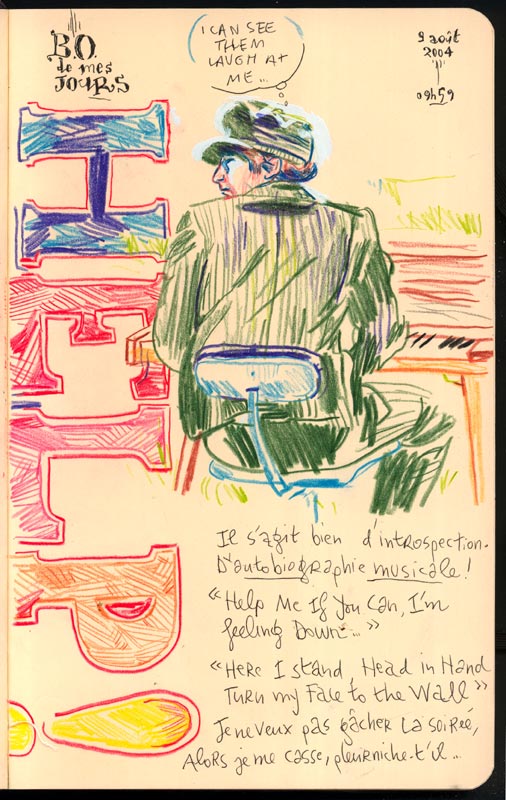 B.O.
de mes
JOURS
I CAN SEE
THEM
LAUGH AT
ME...
9 août
2004
09h59
HELP!
Il s'agit bien d'introspection.
D'autobiographie musicale !
"Help Me If You Can, I'm
feeling Down..."
"Here I stand, Head in Hand
Turn my Face to the Wall"
Je ne veux pas gâcher la soirée,
Alors je me casse, pleurniche-t'il...